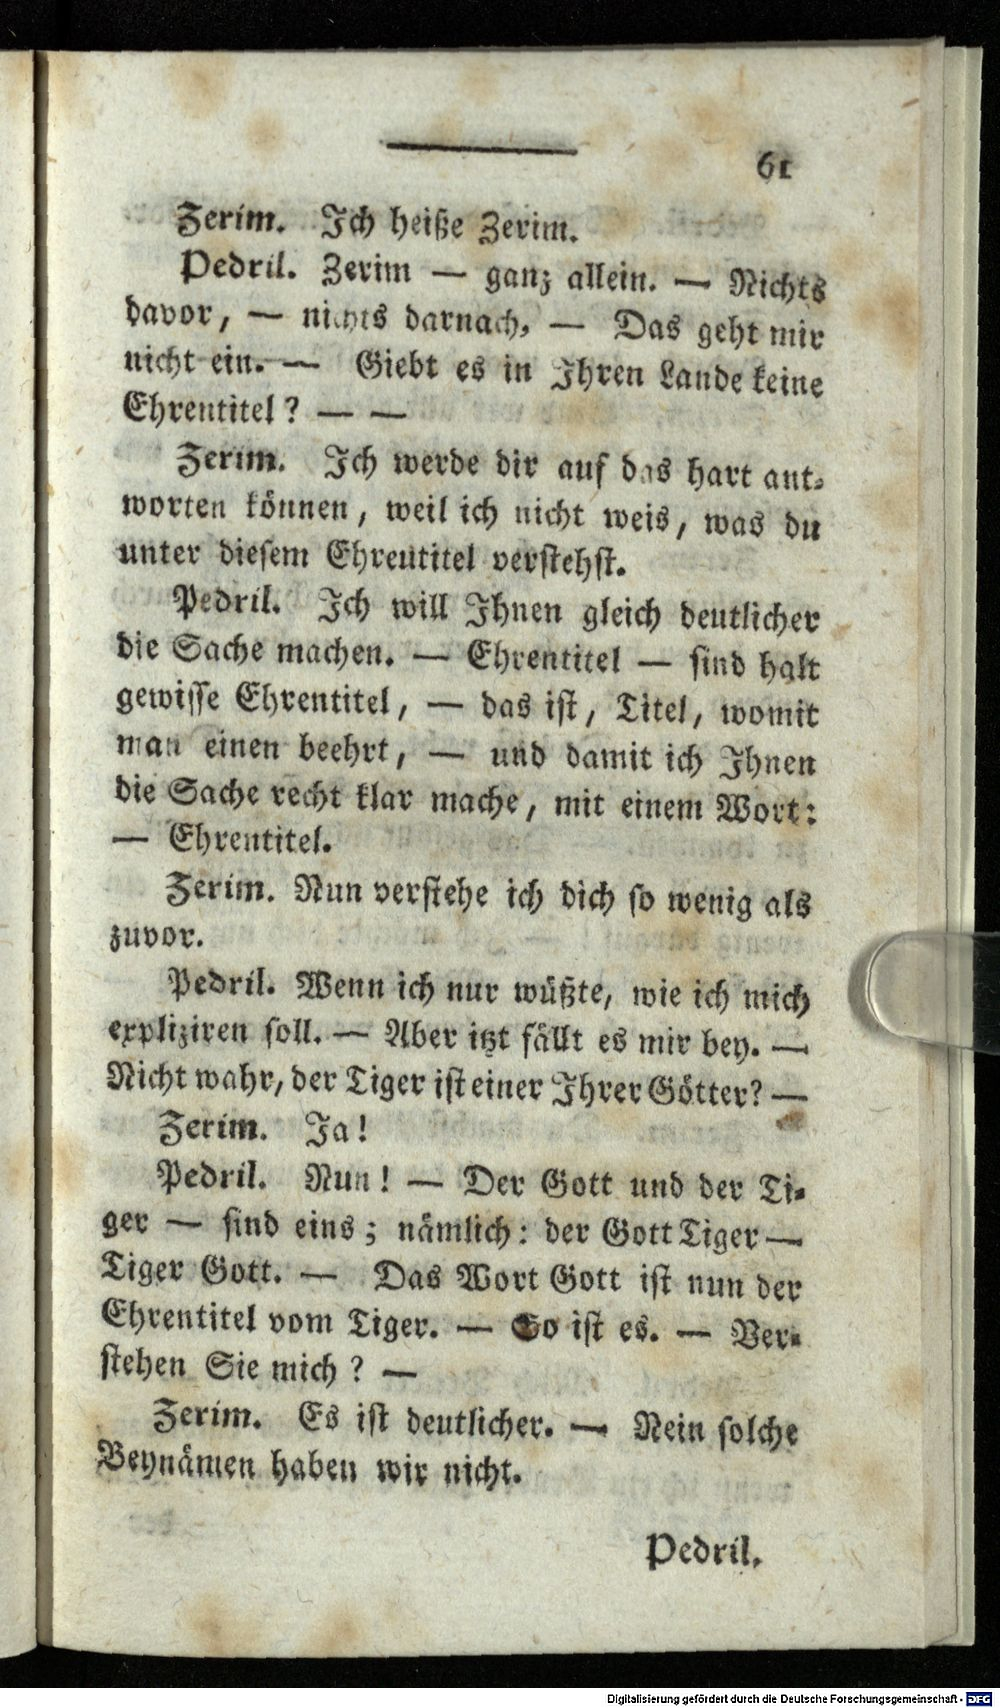 61
Zerim. Ich heiße Zerim.
Pedril. Zerim — ganz allein. — Nichts
davor, — nichts darnach, — Das geht mir
nicht ein. — Giebt es in Ihren Lande keine
Ehrentitel? — —
Zerim. Ich werde dir auf das hart ant-
worten können, weil ich nicht weis, was du
unter diesem Ehrentitel verstehst.
Pedril. Ich will Ihnen gleich deutlicher
die Sache machen. — Ehrentitel — sind halt
gewisse Ehrentitel, — das ist, Titel, womit
man einen beehrt, — und damit ich Ihnen
die Sache recht klar mache, mit einem Wort:
— Ehrentitel.
Zerim. Nun verstehe ich dich so wenig als
zuvor.
Pedril. Wenn ich nur wüßte, wie ich mich
expliziren soll. — Aber itzt fällt es mir bey. —
Nicht wahr, der Tiger ist einer Ihrer Götter? —
Zerim. Ja!
Pedril. Nun! — Der Gott und der Ti-
ger — sind eins; nämlich: der Gott Tiger —
Tiger Gott. — Das Wort Gott ist nun der
Ehrentitel vom Tiger. — So ist es. — Ver-
stehen Sie mich? —
Zerim. Es ist deutlicher. — Nein solche
Beynämen haben wir nicht.
Pedril.
Digitalisierung gefördert durch die Deutsche Forschungsgemeinschaft - DFG